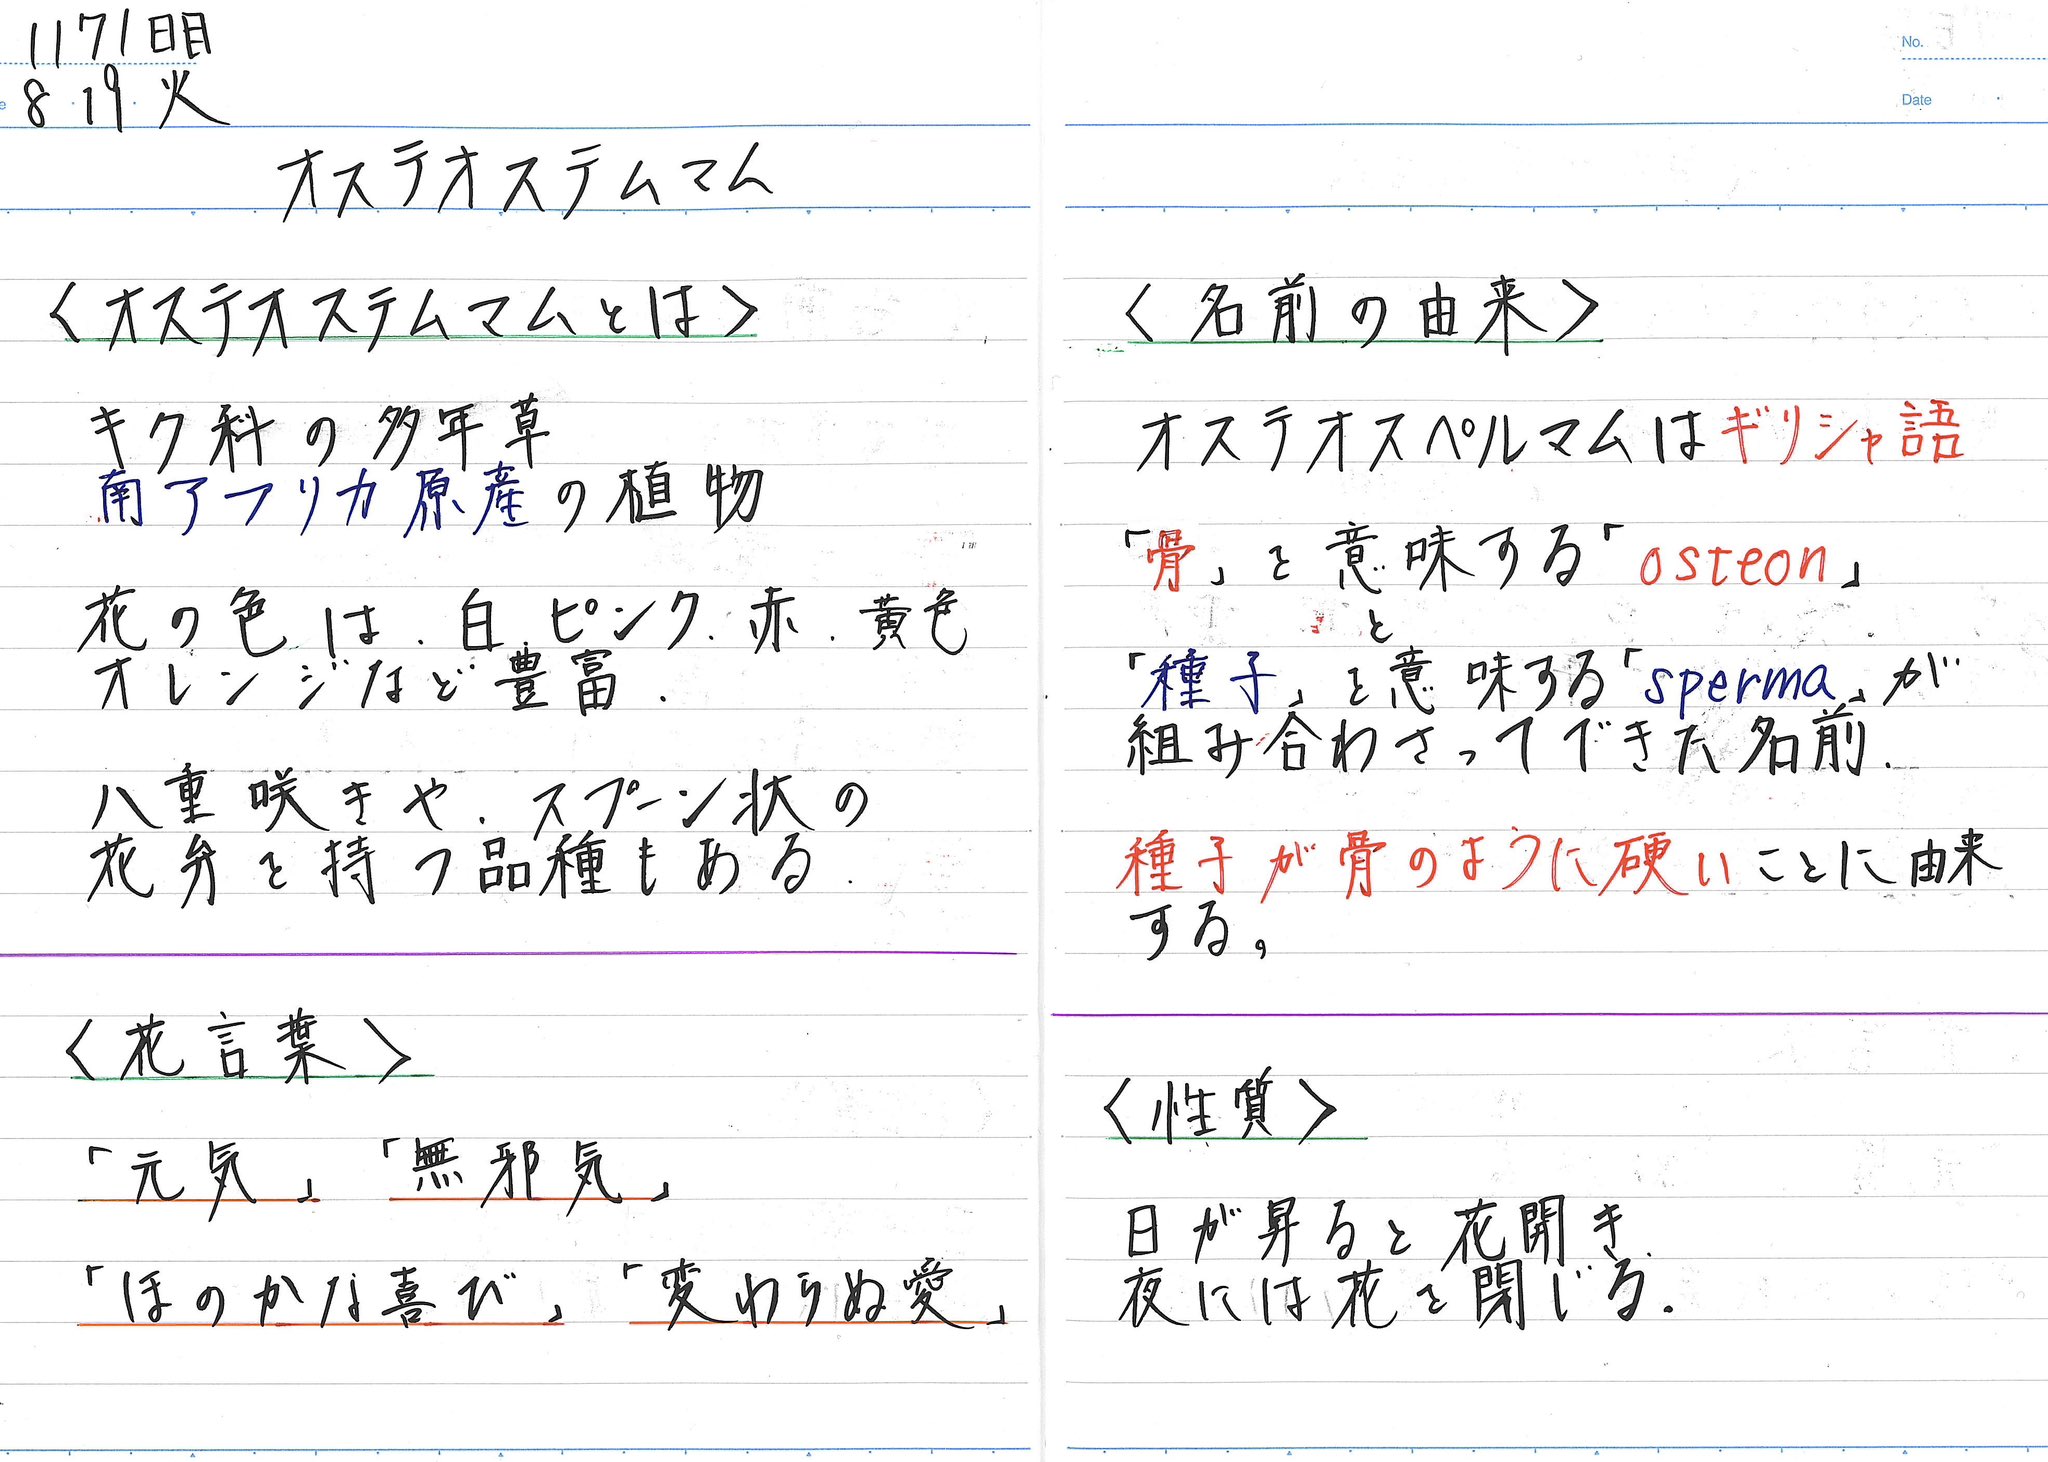 1171日目
8.19.火
オステオステムマム
〈オステオステムマムとは〉
キク科の多年草
南アフリカ原産の植物
花の色は、白、ピンク、赤、黄色
オレンジなど豊富.
八重咲きや、スプーン状の
花弁を持つ品種もある.
〈花言葉〉
「元気」「無邪気」
「ほのかな喜び」「変わらぬ愛」
No.
Date
〈名前の由来〉
オステオスペルマムはギリシャ語
「骨」を意味する「osteon」
と
「種子」を意味する「sperma」が
組み合わさってできた名前.
種子が骨のように硬いことに由来
する。
〈性質〉
日が昇ると花開き、
夜には花を閉じる.